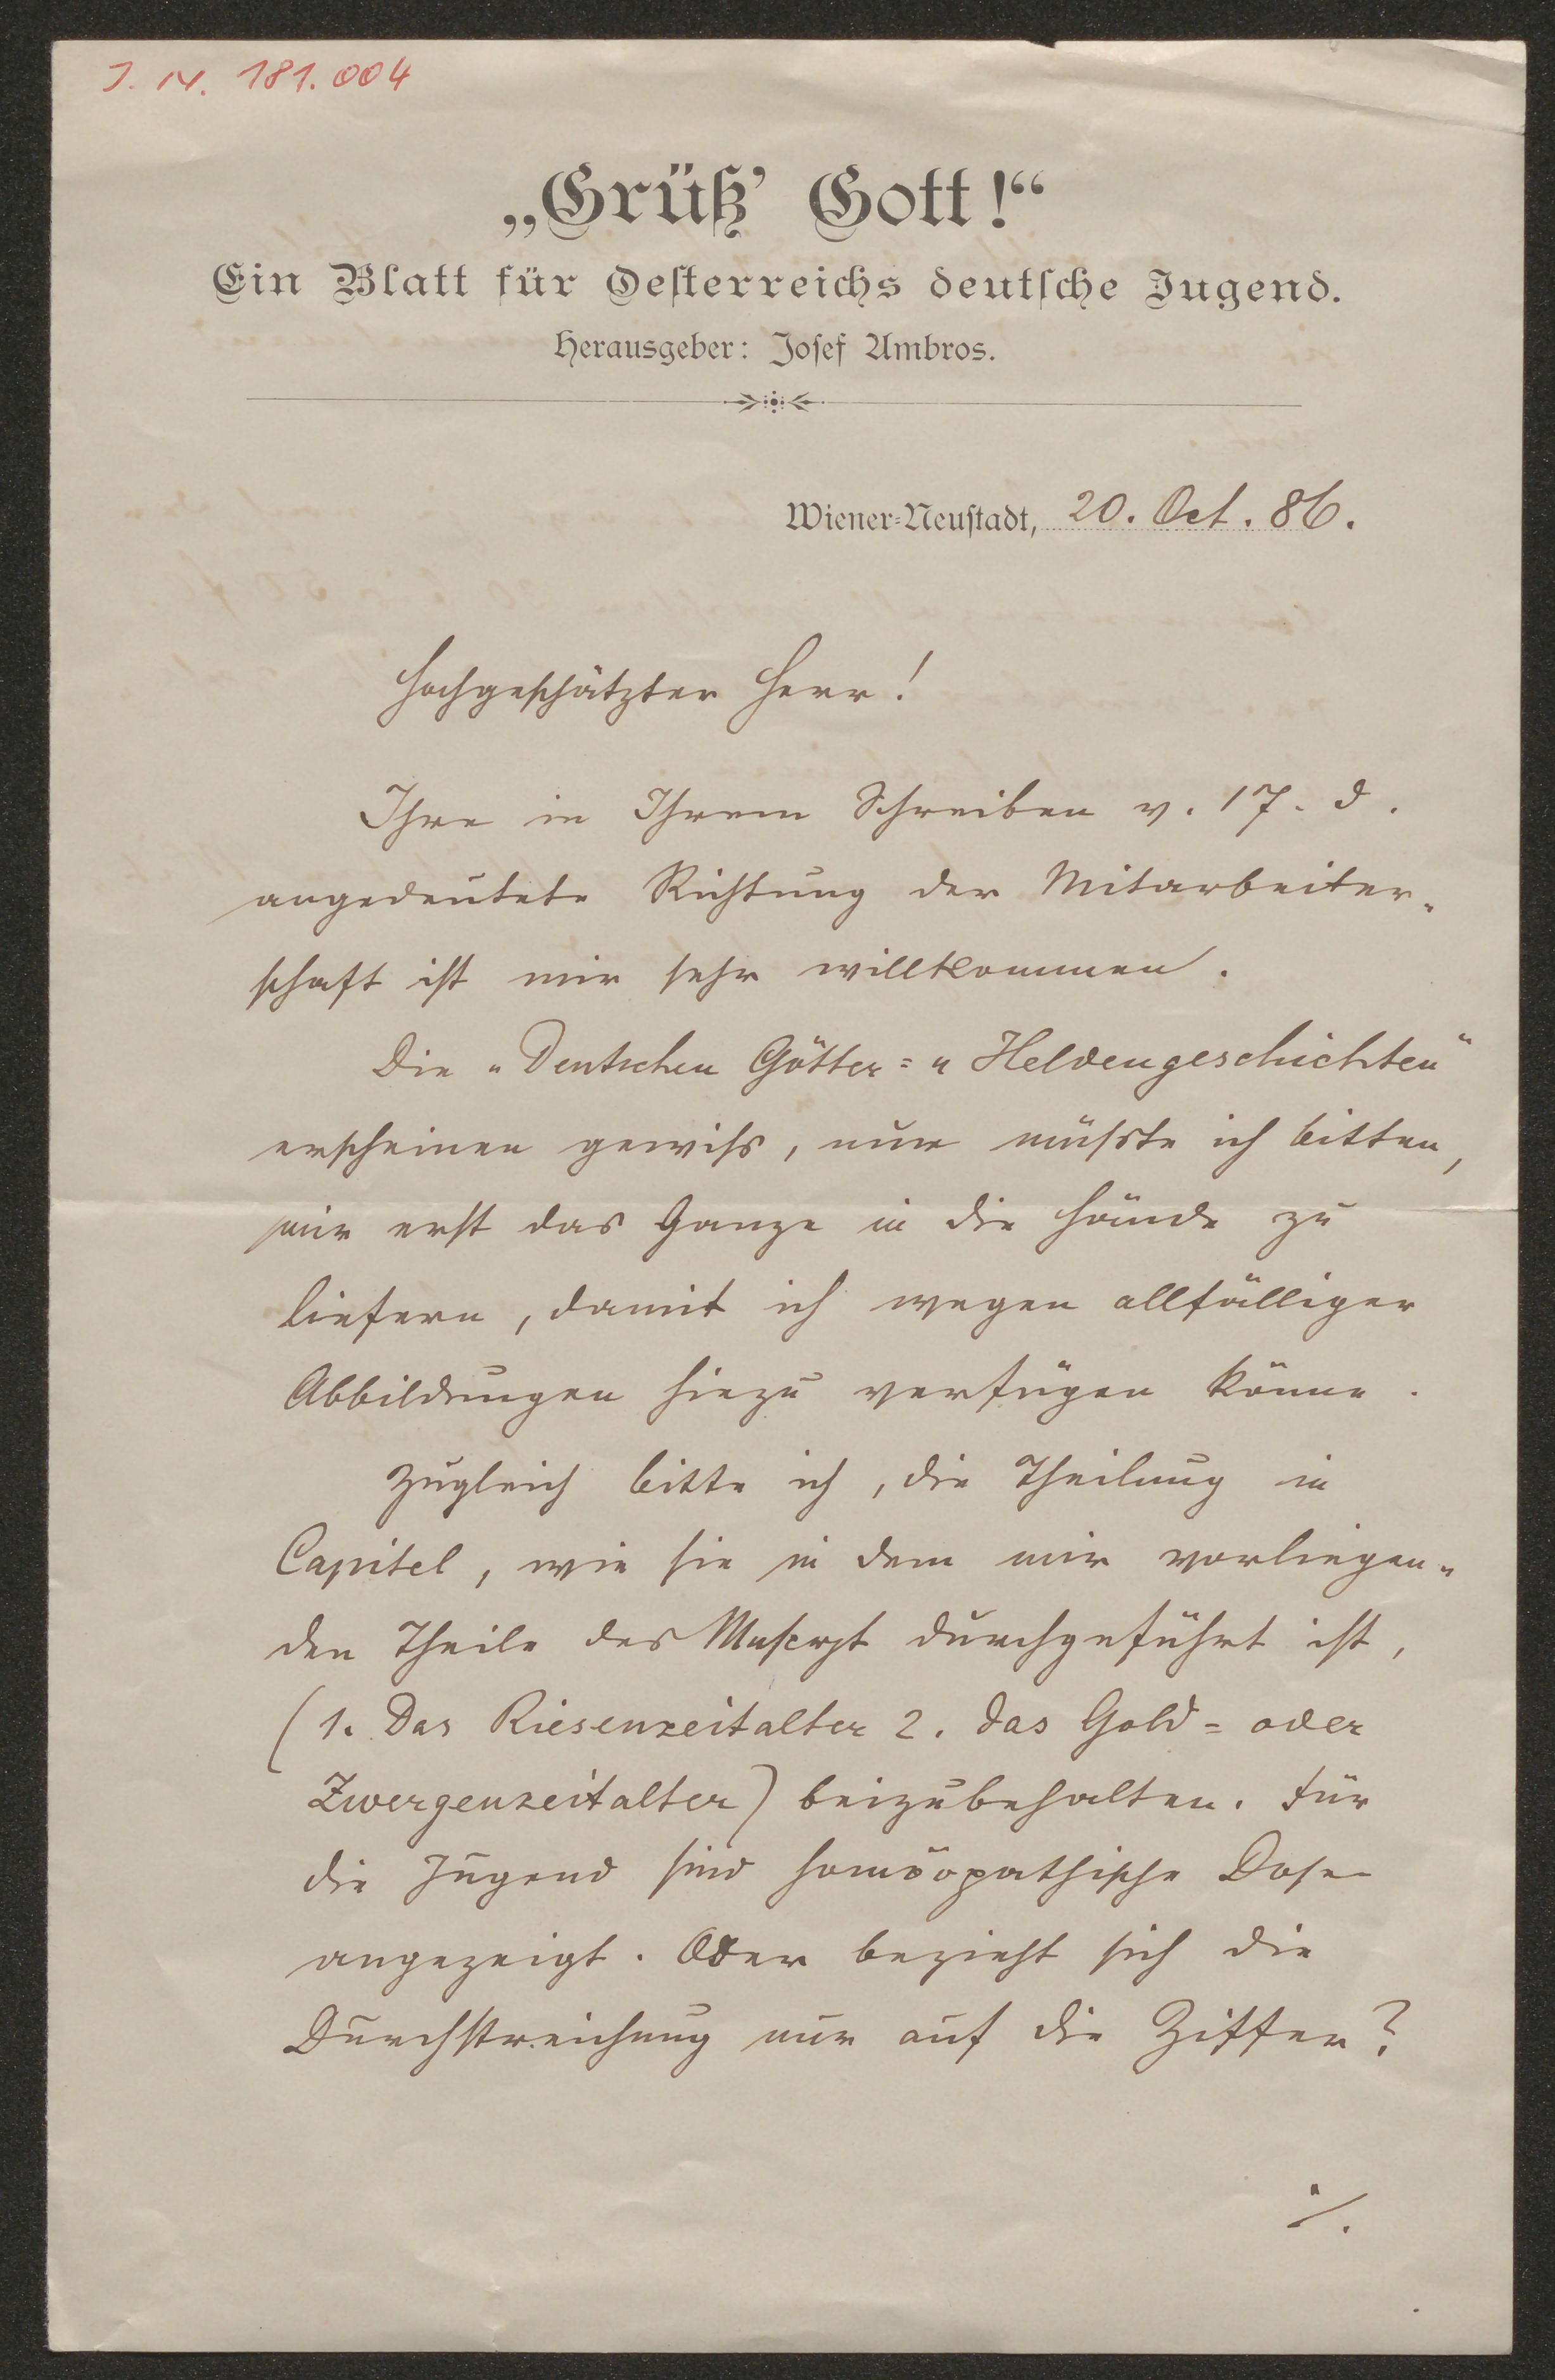 J. N. 181.004
„Grüß' Gott!“
Ein Blatt für Oesterreichs deutsche Jugend.
Herausgeber: Josef Ambros.
Wiener-Neustadt, 20. Oct. 86.
Hochgeschätzter Herr!
Ihre in Ihrem Schreiben v. 17. d.
angedeutete Richtung der Mitarbeiter-
schaft ist mir sehr willkommen.
Die „Deutschen Götter= u Heldengeschichten“
erscheinen gewiß, nur müßte ich bitten,
mir erst das Ganze in die Hände zu
liefern, damit ich wegen allfälliger
Abbildungen hiezu verfügen könne.
Zugleich bitte ich, die Theilung in
Capitel, wie sie in dem mir vorliegen-
den Theile des Mnscrpt durchgeführt ist,
(1. Das Riesenzeitalter 2. das Gold= oder
Zwergenzeitalter) beizubehalten. Für
die Jugend sind homöopathische Dosen
angezeigt. Oder bezieht sich die
Durchstreichung nur auf die Ziffer?
./.